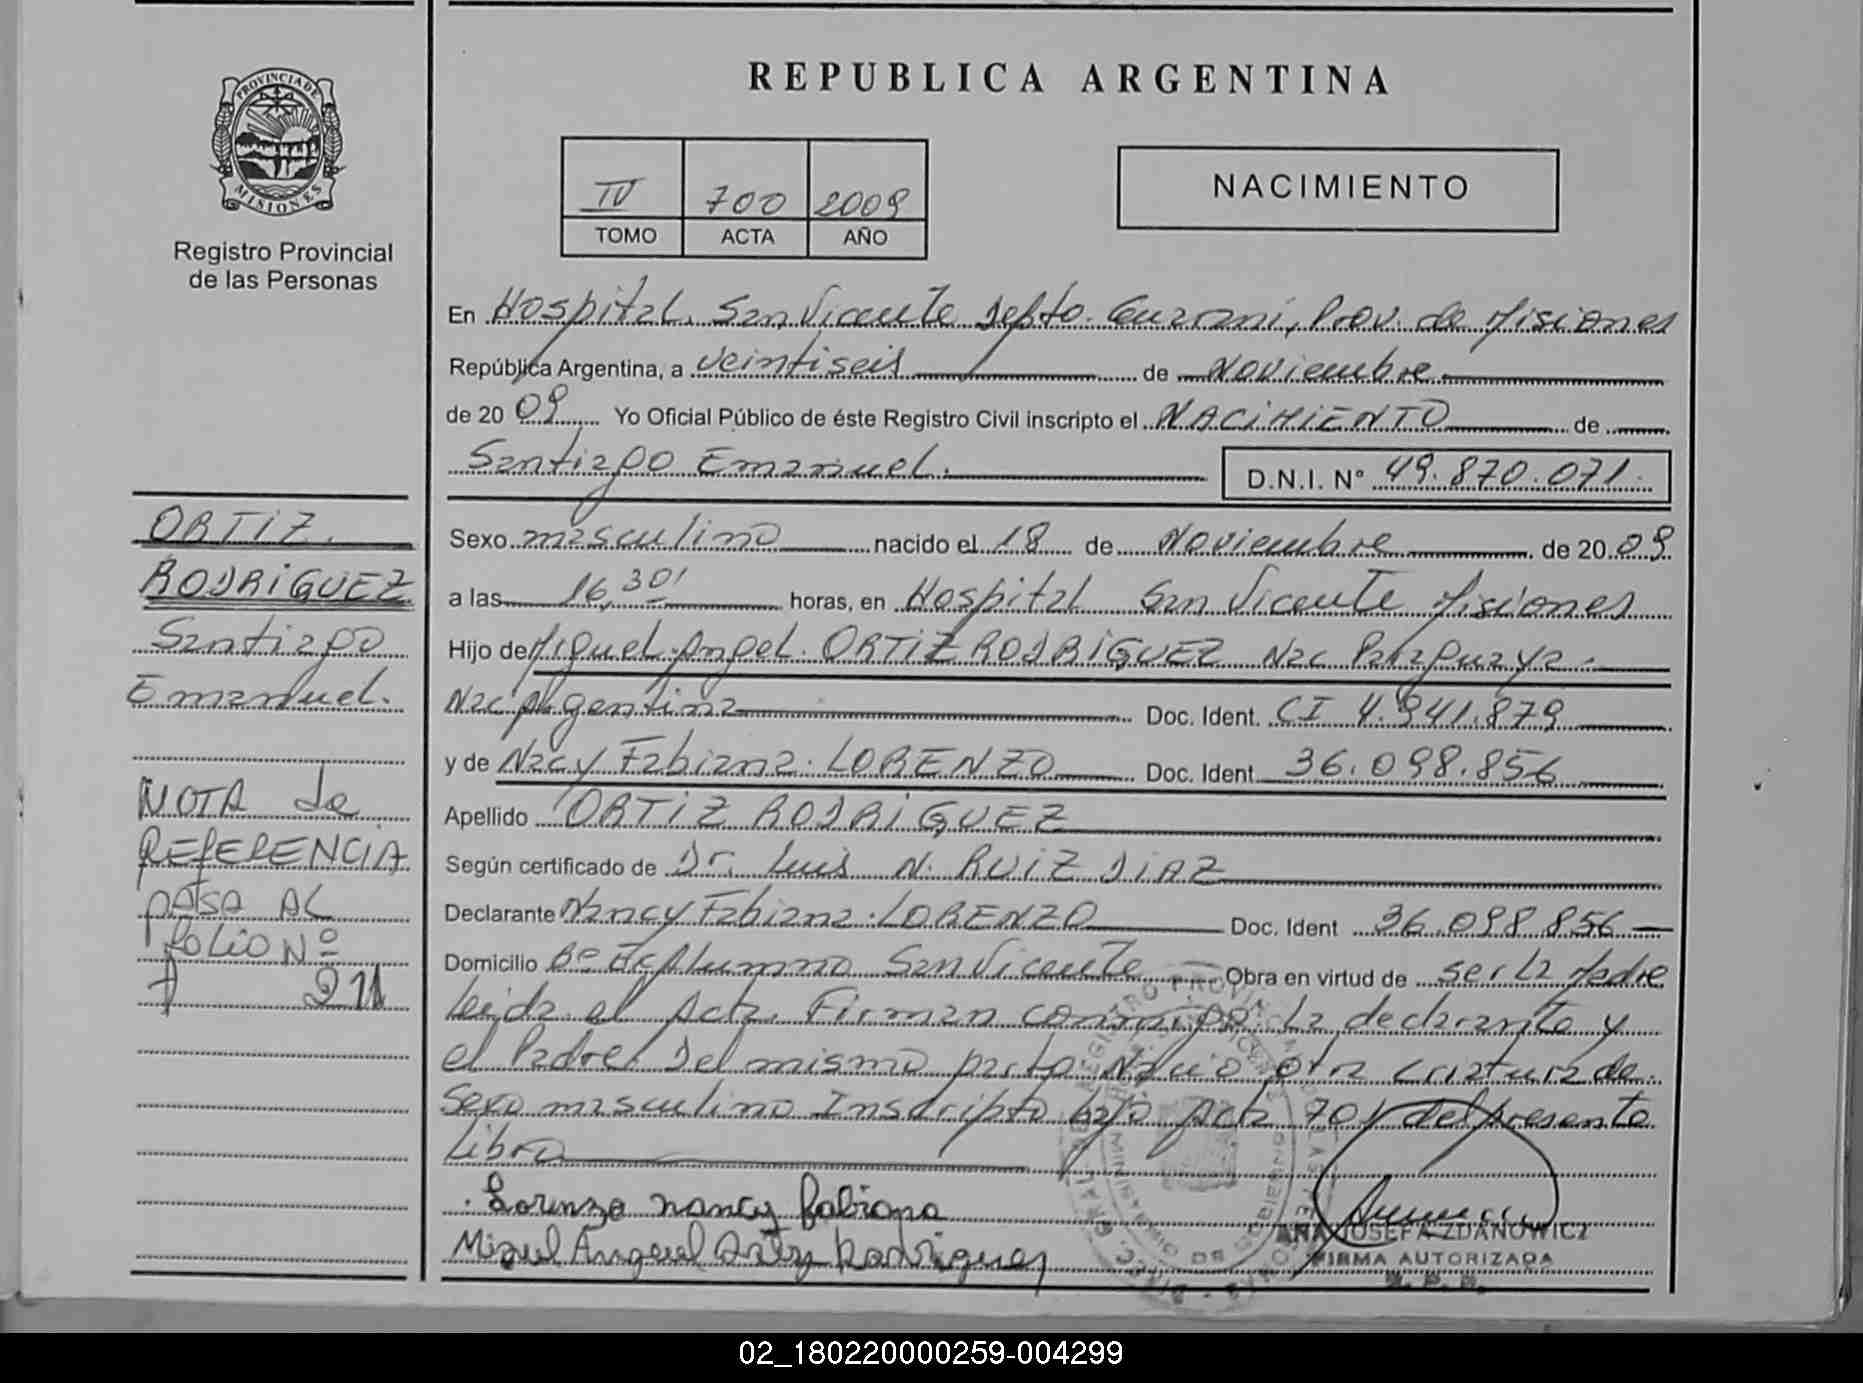 PROVINCIA DE
MISIONES
Registro Provincial
de las Personas
REPUBLICA ARGENTINA
IV 700 2009
TOMO ACTA AÑO
NACIMIENTO
En Hospital San Vicente Depto. Guarani, Prov. de Misiones
República Argentina, a veintiseis de Noviembre
de 2009 Yo Oficial Público de éste Registro Civil inscripto el NACIMIENTO de
Santiago Emanuel. D.N.I. Nº 49.870.071.
Sexo masculino nacido el 18 de Noviembre de 2009
a las 16,30' horas, en Hospital San Vicente Misiones
Hijo de Miguel Angel ORTIZ RODRIGUEZ Nac Paraguaya
Nac Argentina Doc. Ident. CI 4.941.879
y de Nacy Fabiana LORENZO Doc. Ident. 36.098.856
Apellido ORTIZ RODRIGUEZ
Según certificado de Dr. Luis N. RUIZ DIAZ
Declarante Nancy Fabiana LORENZO Doc. Ident 36.098.856
Domicilio Bº San Vicente Obra en virtud de ser la Madre
leida el Acta. Firman conmigo la declarante y
el Padre. Del mismo parto Nació otra criatura de
Sexo masculino Inscripto bajo Acta 701 del presente
Libro
Lorenzo nancy fabiana
Miguel Angel Ortiz Rodriguez
ANA JOSEFA ZDANOWICZ
FIRMA AUTORIZADA
ORTIZ
RODRIGUEZ
Santiago
Emanuel.
NOTA de
REFERENCIA
pasa AL
folio Nº
211
02_180220000259-004299